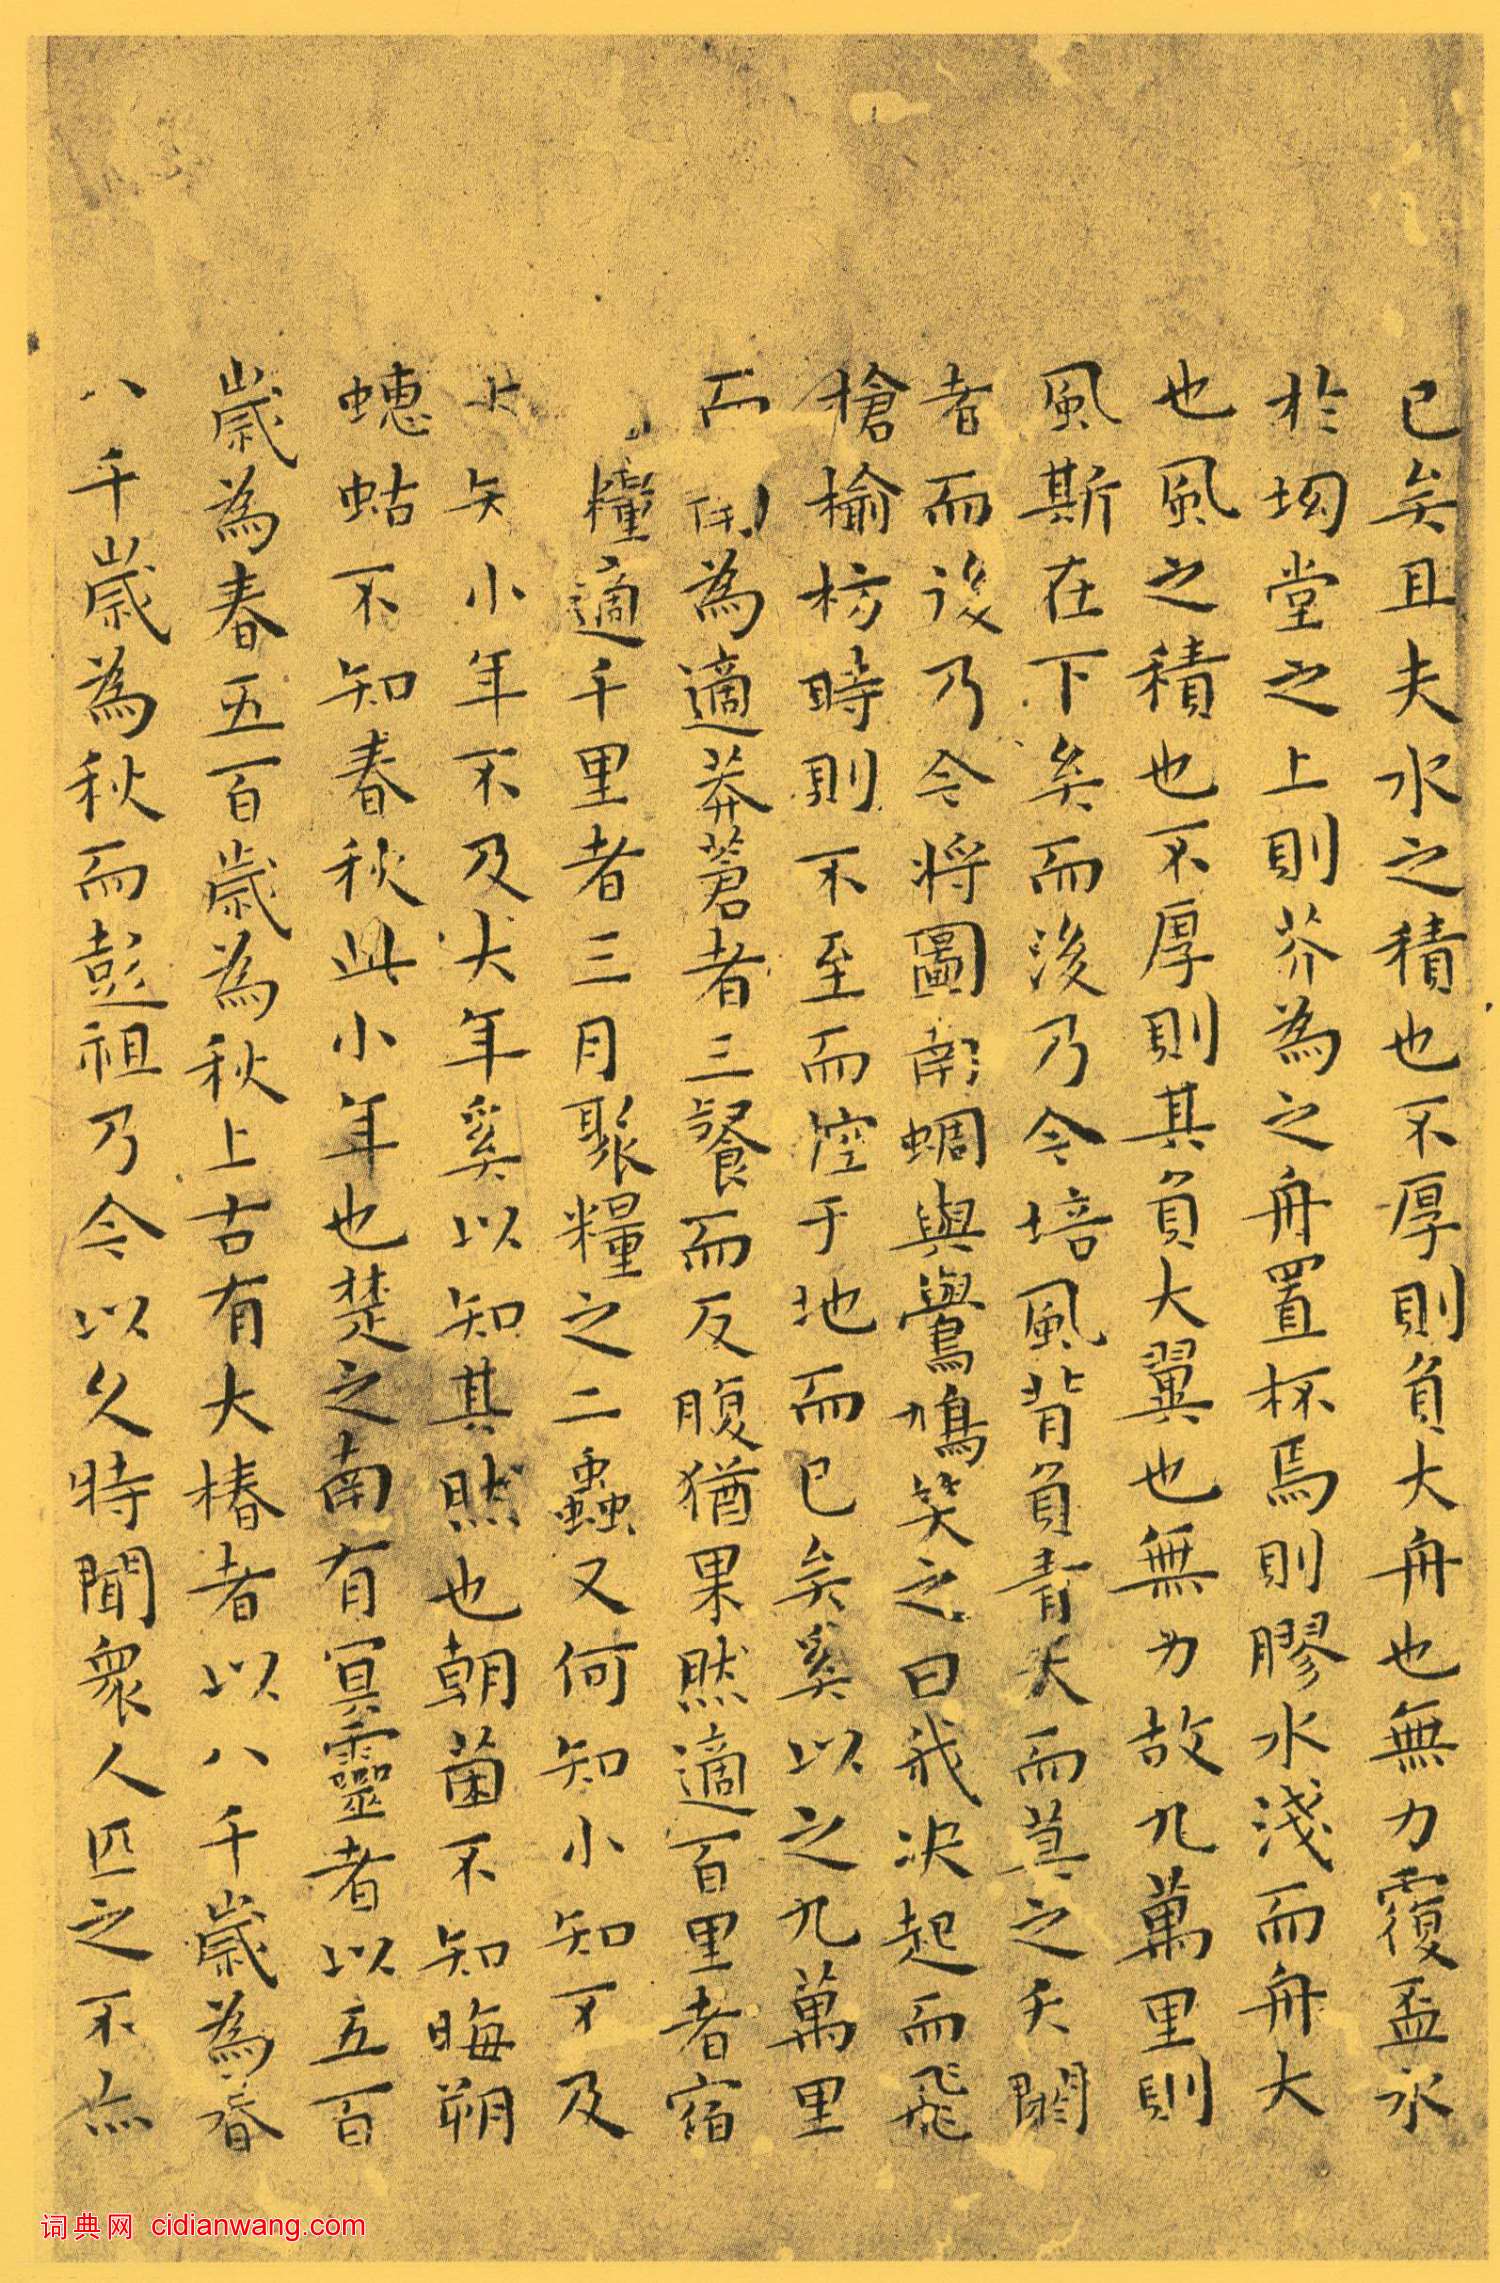 已矣且夫水之積也不厚則負大舟也無力覆盃水
於坳堂之上則芥為之舟置杯焉則膠水淺而舟大
也風之積也不厚則其負大翼也無力故九萬里則
風斯在下矣而後乃今培風背負青天而莫之夭閼
者而後乃今將圖南蜩與鷽鳩笑之曰我決起而飛
槍榆枋時則不至而控于地而已矣奚以之九萬里
而為適莽蒼者三餐而反腹猶果然適百里者宿
糧適千里者三月聚糧之二蟲又何知小知不及
大知小年不及大年奚以知其然也朝菌不知晦朔
蟪蛄不知春秋此小年也楚之南有冥靈者以五百
歲為春五百歲為秋上古有大椿者以八千歲為春
八千歲為秋而彭祖乃今以久特聞衆人匹之不亦
词典网 cidianwang.com